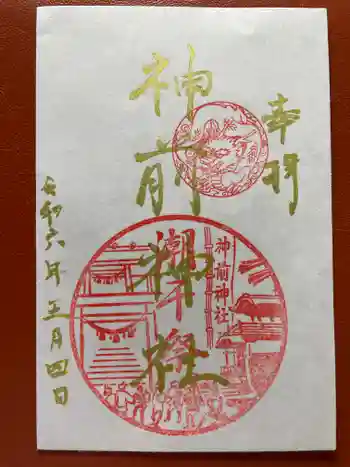 奉拝
神前神社
神前神社
令和六年五月四日